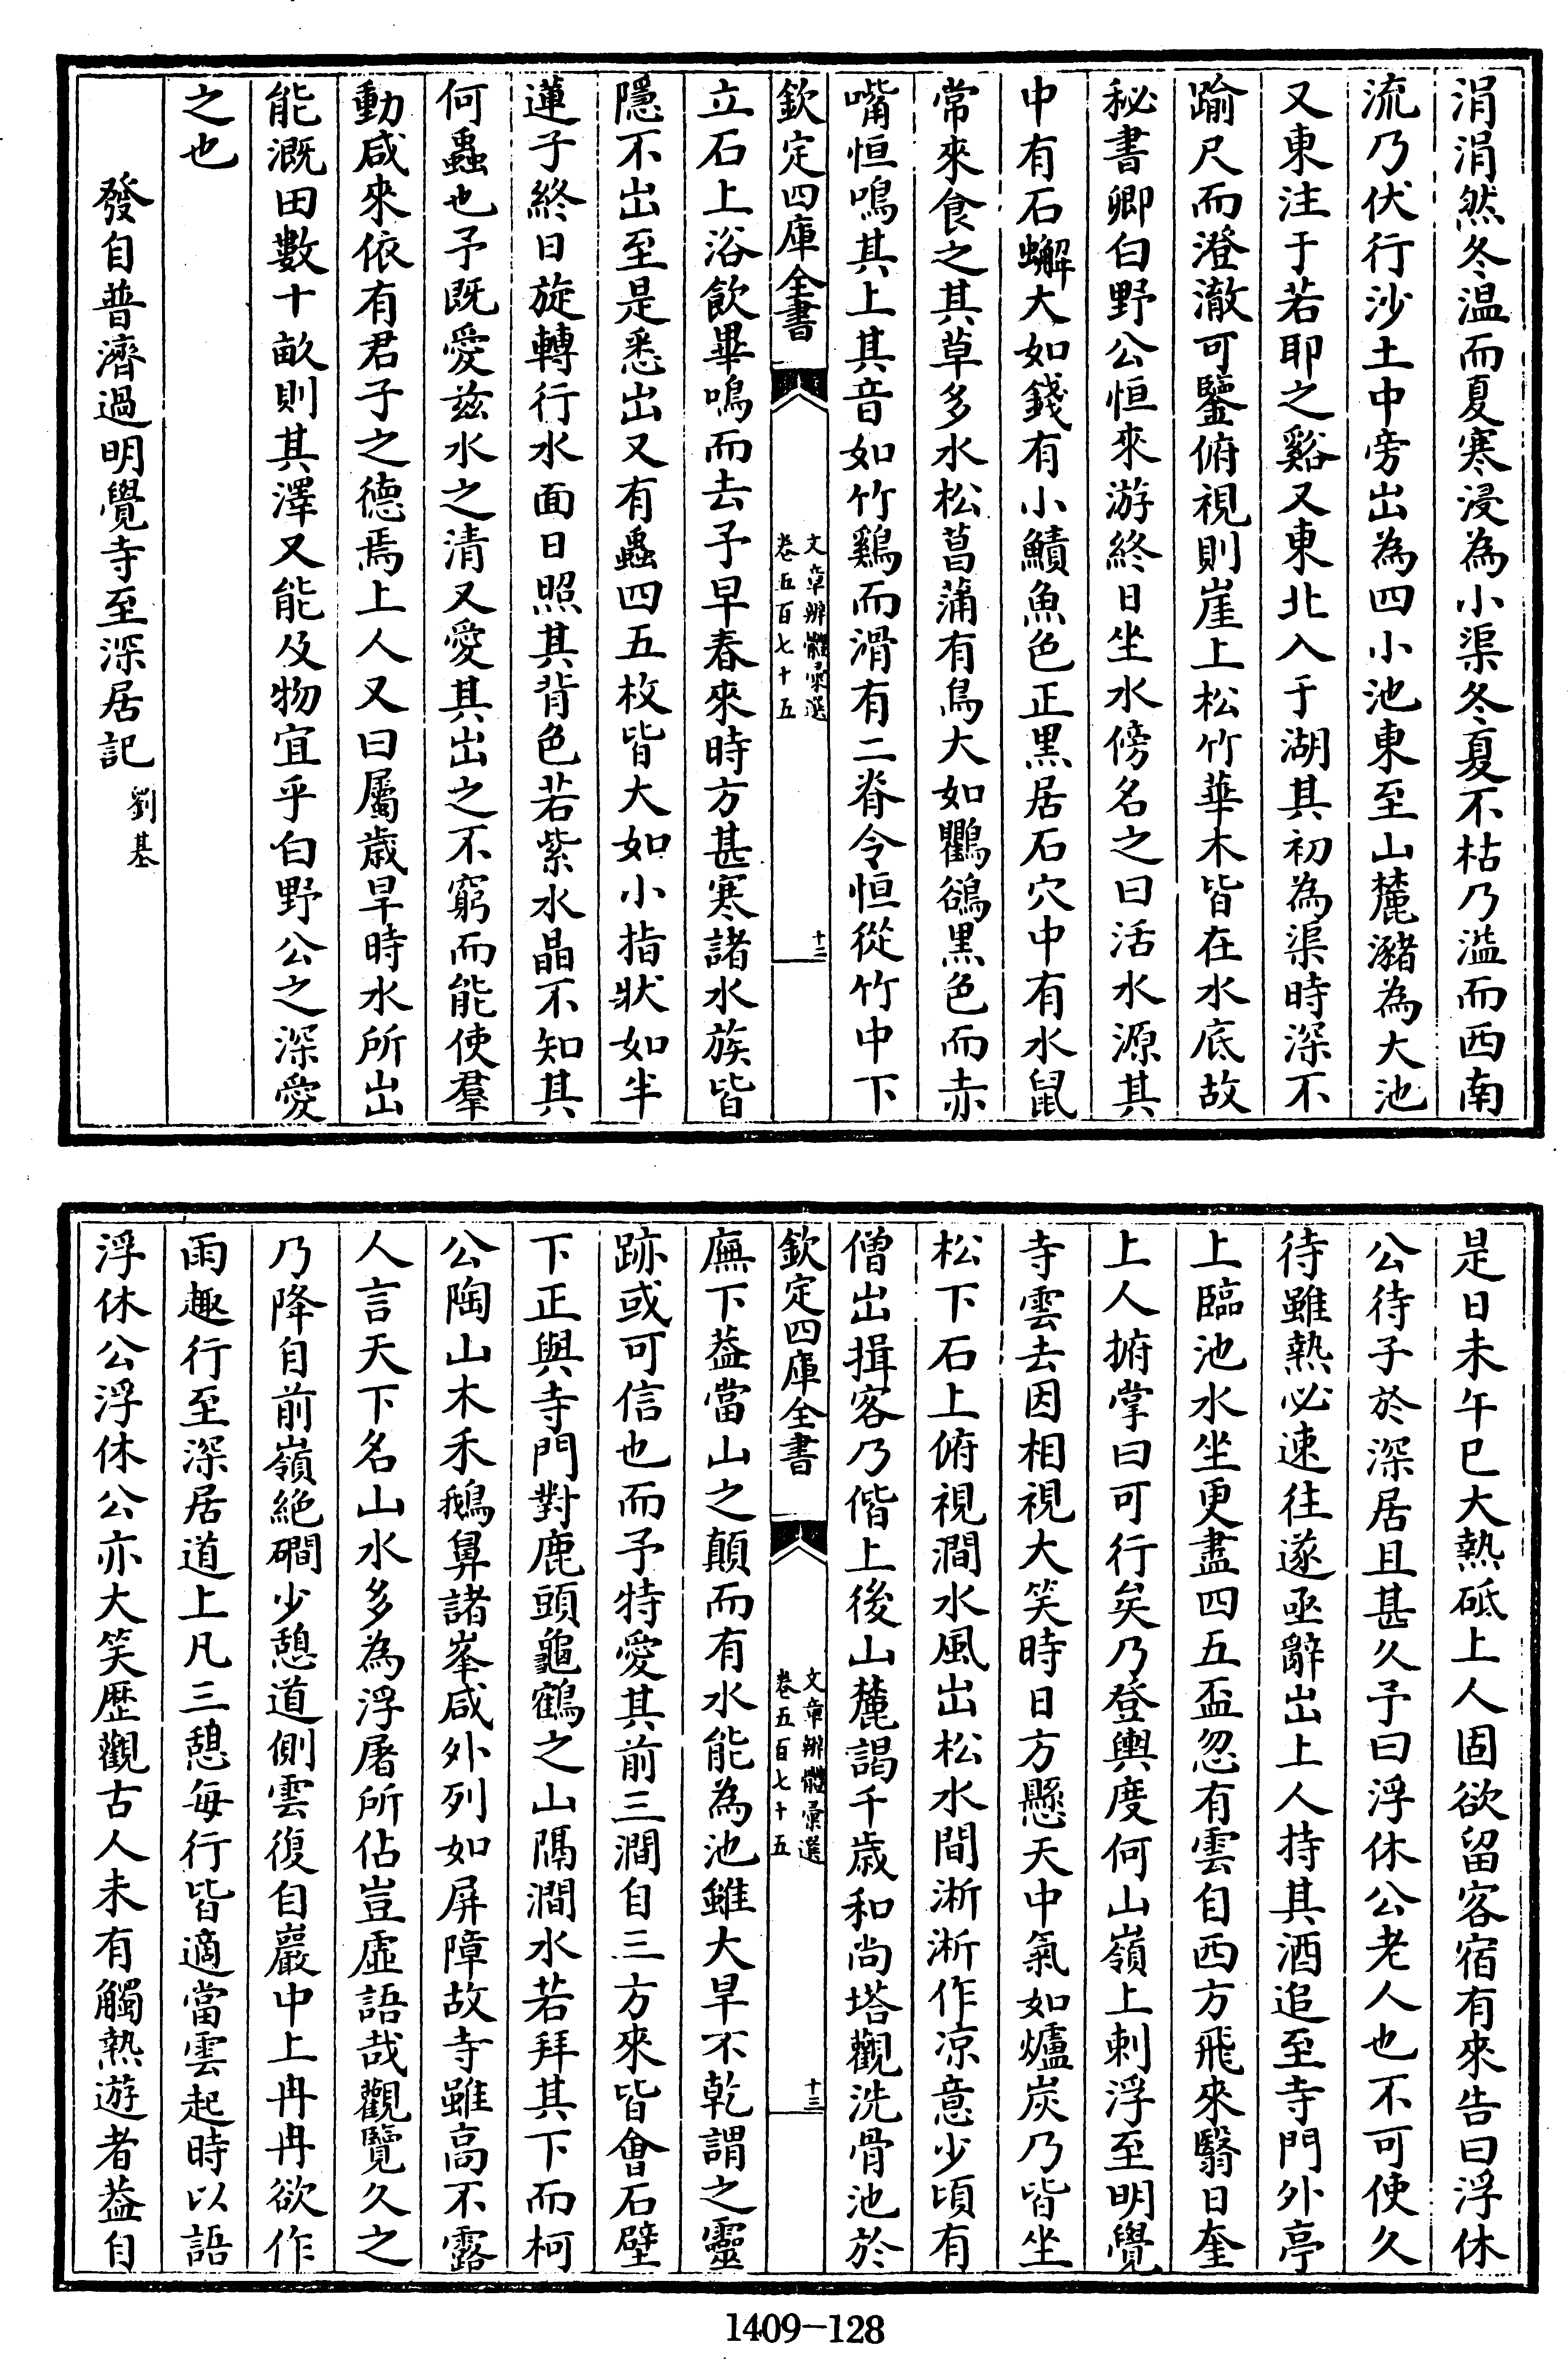 涓涓然冬温而夏寒浸為小渠冬夏不枯乃溢而西南
流乃伏行沙土中旁出為四小池東至山麓瀦為大池
又東注于若耶之谿又東北入于湖其初為渠時深不
踰尺而澄澈可鑒俯視則崖上松竹華木皆在水底故
秘書卿白野公恒來游終日坐水傍名之曰活水源其
中有石蠏大如錢有小鰿魚色正黒居石穴中有水鼠
常來食之其草多水松菖蒲有鳥大如鸜鵒黒色而赤
嘴恒鳴其上其音如竹雞而滑有二脊令恒從竹中下
欽定四庫全書
文章辨體彚選
卷五百七十五
十二
立石上浴飲畢鳴而去予早春來時方甚寒諸水族皆
隱不出至是悉出又有蟲四五枚皆大如小指狀如半
蓮子終日旋轉行水面日照其背色若紫水晶不知其
何蟲也予既愛兹水之清又愛其出之不窮而能使羣
動咸來依有君子之德焉上人又曰屬歳旱時水所出
能溉田數十畝則其澤又能及物宜乎白野公之深愛
之也
發自普濟過明覺寺至深居記
劉基
是日未午已大熱砥上人固欲留客宿有來告曰浮休
公待子於深居且甚久予曰浮休公老人也不可使久
待雖熱必速往遂亟辭出上人持其酒追至寺門外亭
上臨池水坐更盡四五盃忽有雲自西方飛來翳日奎
上人撫掌曰可行矣乃登輿度何山嶺上刺浮至明覺
寺雲去因相視大笑時日方懸天中氣如爐炭乃皆坐
松下石上俯視澗水風出松水間淅淅作凉意少頃有
僧出揖客乃偕上後山麓謁千歳和尚塔觀洗骨池於
欽定四庫全書
文章辨體彚選
卷五百七十五
十三
廡下葢當山之顛而有水能為池雖大旱不乾謂之靈
跡或可信也而予特愛其前三澗自三方來皆會石壁
下正與寺門對鹿頭龜鶴之山隔澗水若拜其下而柯
公陶山木禾鵝鼻諸峯咸外列如屏障故寺雖高不露
人言天下名山水多為浮屠所佔豈虛語哉觀覽久之
乃降自前嶺絶磵少憩道側雲復自巖中上冉冉欲作
雨趣行至深居道上凡三憩每行皆適當雲起時以語
浮休公浮休公亦大笑歴觀古人未有觸熱遊者葢自
1409-128